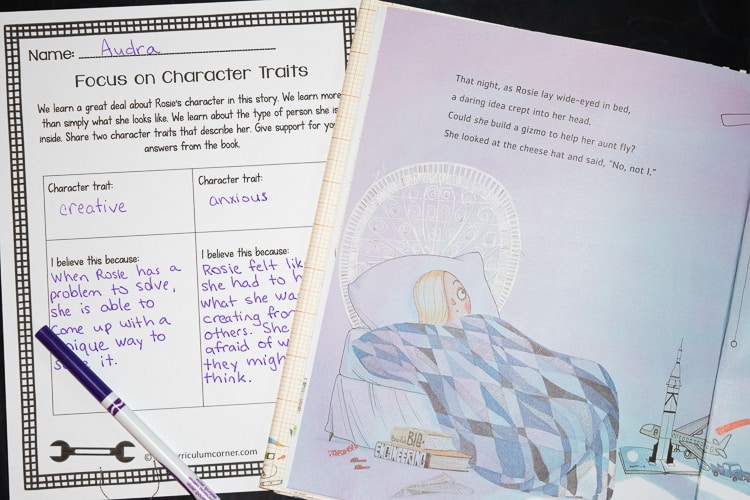 Name: Audra
Focus on Character Traits
We learn a great deal about Rosie's character in this story. We learn more
than simply what she looks like. We learn about the type of person she is
inside. Share two character traits that describe her. Give support for
answers from the book.
Character trait:
creative
Character trait:
anxious
I believe this because:
When Rosie has a
problem to solve,
she is able to
come up with a
way to
it.
I believe this because:
Rosie felt
she had to
what she
creating
others. She
afraid of
they
think.
That night, as Rosie lay wide-eyed in bed,
a daring idea crept into her head.
Could she build a gizmo to help her aunt fly?
She looked at the cheese hat and said, "No, not I."
BIG
ENGINEERING